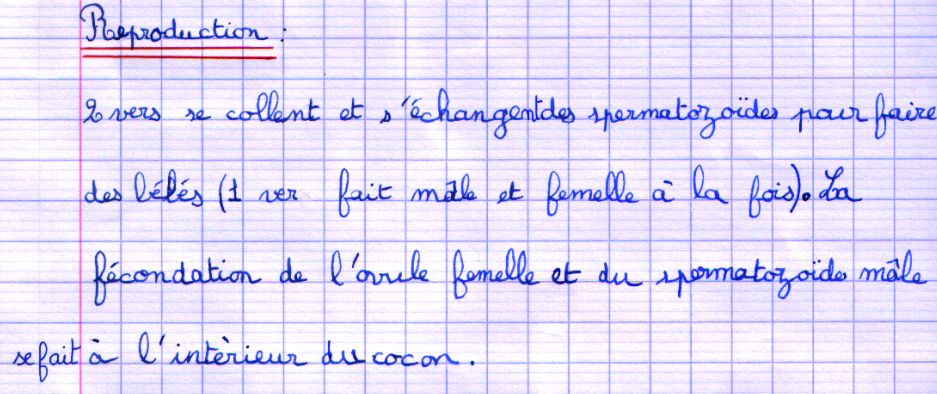 Reproduction :
2 vers se collent et s'échangentdes spermatozoïdes pour faire
des bébés (1 ver fait mâle et femelle à la fois). La
fécondation de l'ovule femelle et du spermatozoïde mâle
se fait à l'intèrieur du cocon.